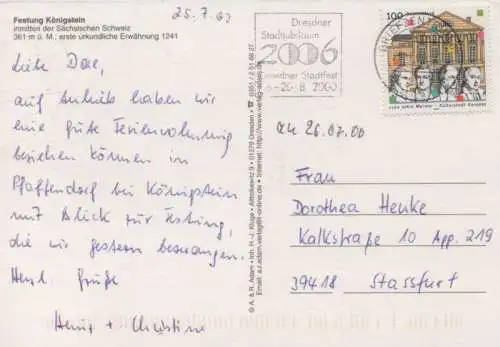 25.7.
Festung Königstein
inmitten der Sächsischen Schweiz
361 m ü. M.; erste urkundliche Erwähnung 1241
Liebe Doe,
auf Anhieb haben wir
eine gute Ferienwohnung
beziehen können in
Pfaffendorf bei Königstein
mit Blick zur Festung,
die wir gestern bezwangen.
Herzl. Grüße
Heinz + Christine
Dresdner
Stadtjubiläum
2006
Dresdner Stadtfest
-20.8.2000
100
BRIEFZENTRUM
an 26.07.00
Frau
Dorothea Henke
Kalkstraße 10 App. 219
39418 Stassfurt
© A. & R. Adam • Inh. H.-J. Kluge • 01279 Dresden • ☎ 0351 / 2 51 66 27
Email: a.r.adam.verlag@t-online.de • Internet: http://www.verlag-adam.de